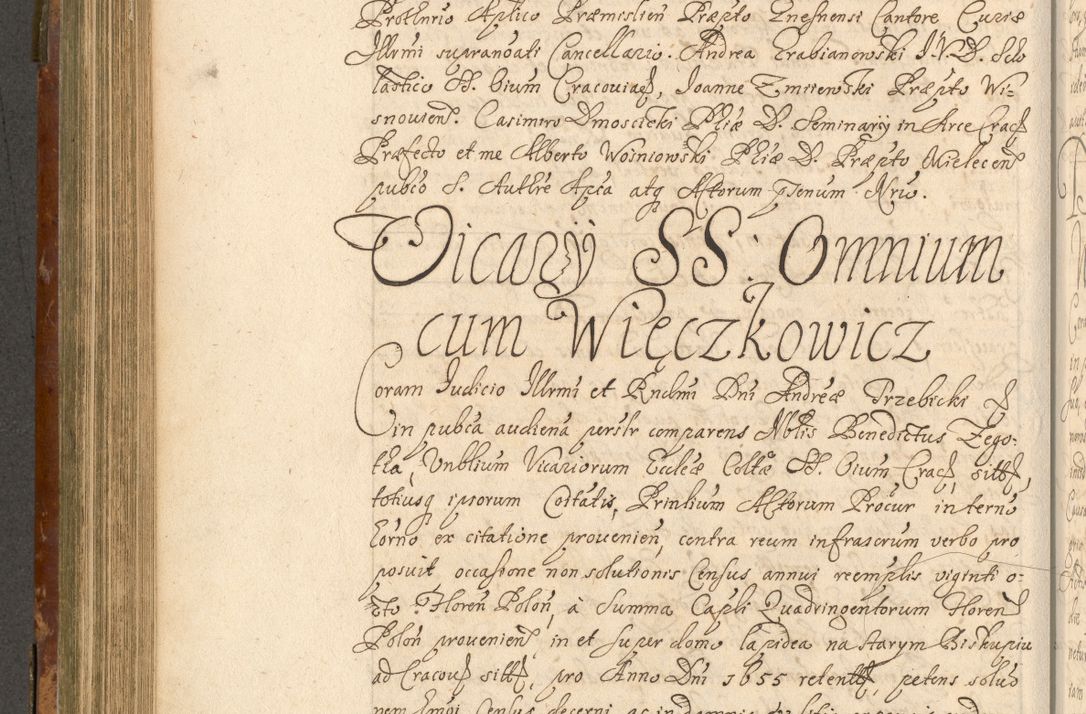 Prothnrio Aplico Præmislien Præpto Gnesnensi Cantore Curiæ
Illrmi supranoati Cancellario. Andrea Grabianowski J.V.D. Scho
lastico SS. Oium Cracoviae, Joanne Zmiiewski Præpto Wi-
snovien. Casimiro Dmoscicki Pliæ D. Seminarij in Arce Crac
Præfecto et me Alberto Wosniowski Pliæ D. Præpto Mielecen
pubco S. Authre Apca atq Actorum psenum Nrio.
Vicarij SS. Omnium
cum Więczkowicz
Coram Iudicio Illrmi et Rndmi Dni Andreæ Trzebicki
in pubca audiena persłr comparens Nobłis Benedictus Zego-
tka, Vnblium Vicariorum Ecclæ Coltæ SS. Oium Crac, sittt
totiusq ipsorum Coltatis, Prinlium Actorum Procur in terno
horno ex citatione provenien, contra reum infrascrum verbo pro
posuit, occasione non solutionis Census annui reemplis viginti o-
cto Floren Polon, à Summa Capli Quadringentorum Floren
Polon provenien in et super domo lapidea na starym Biskupiu
ad Cracov sittt, pro Anno Dni 1655 retentt, petens soluo
nem hmoi Census decerni ac in damnis